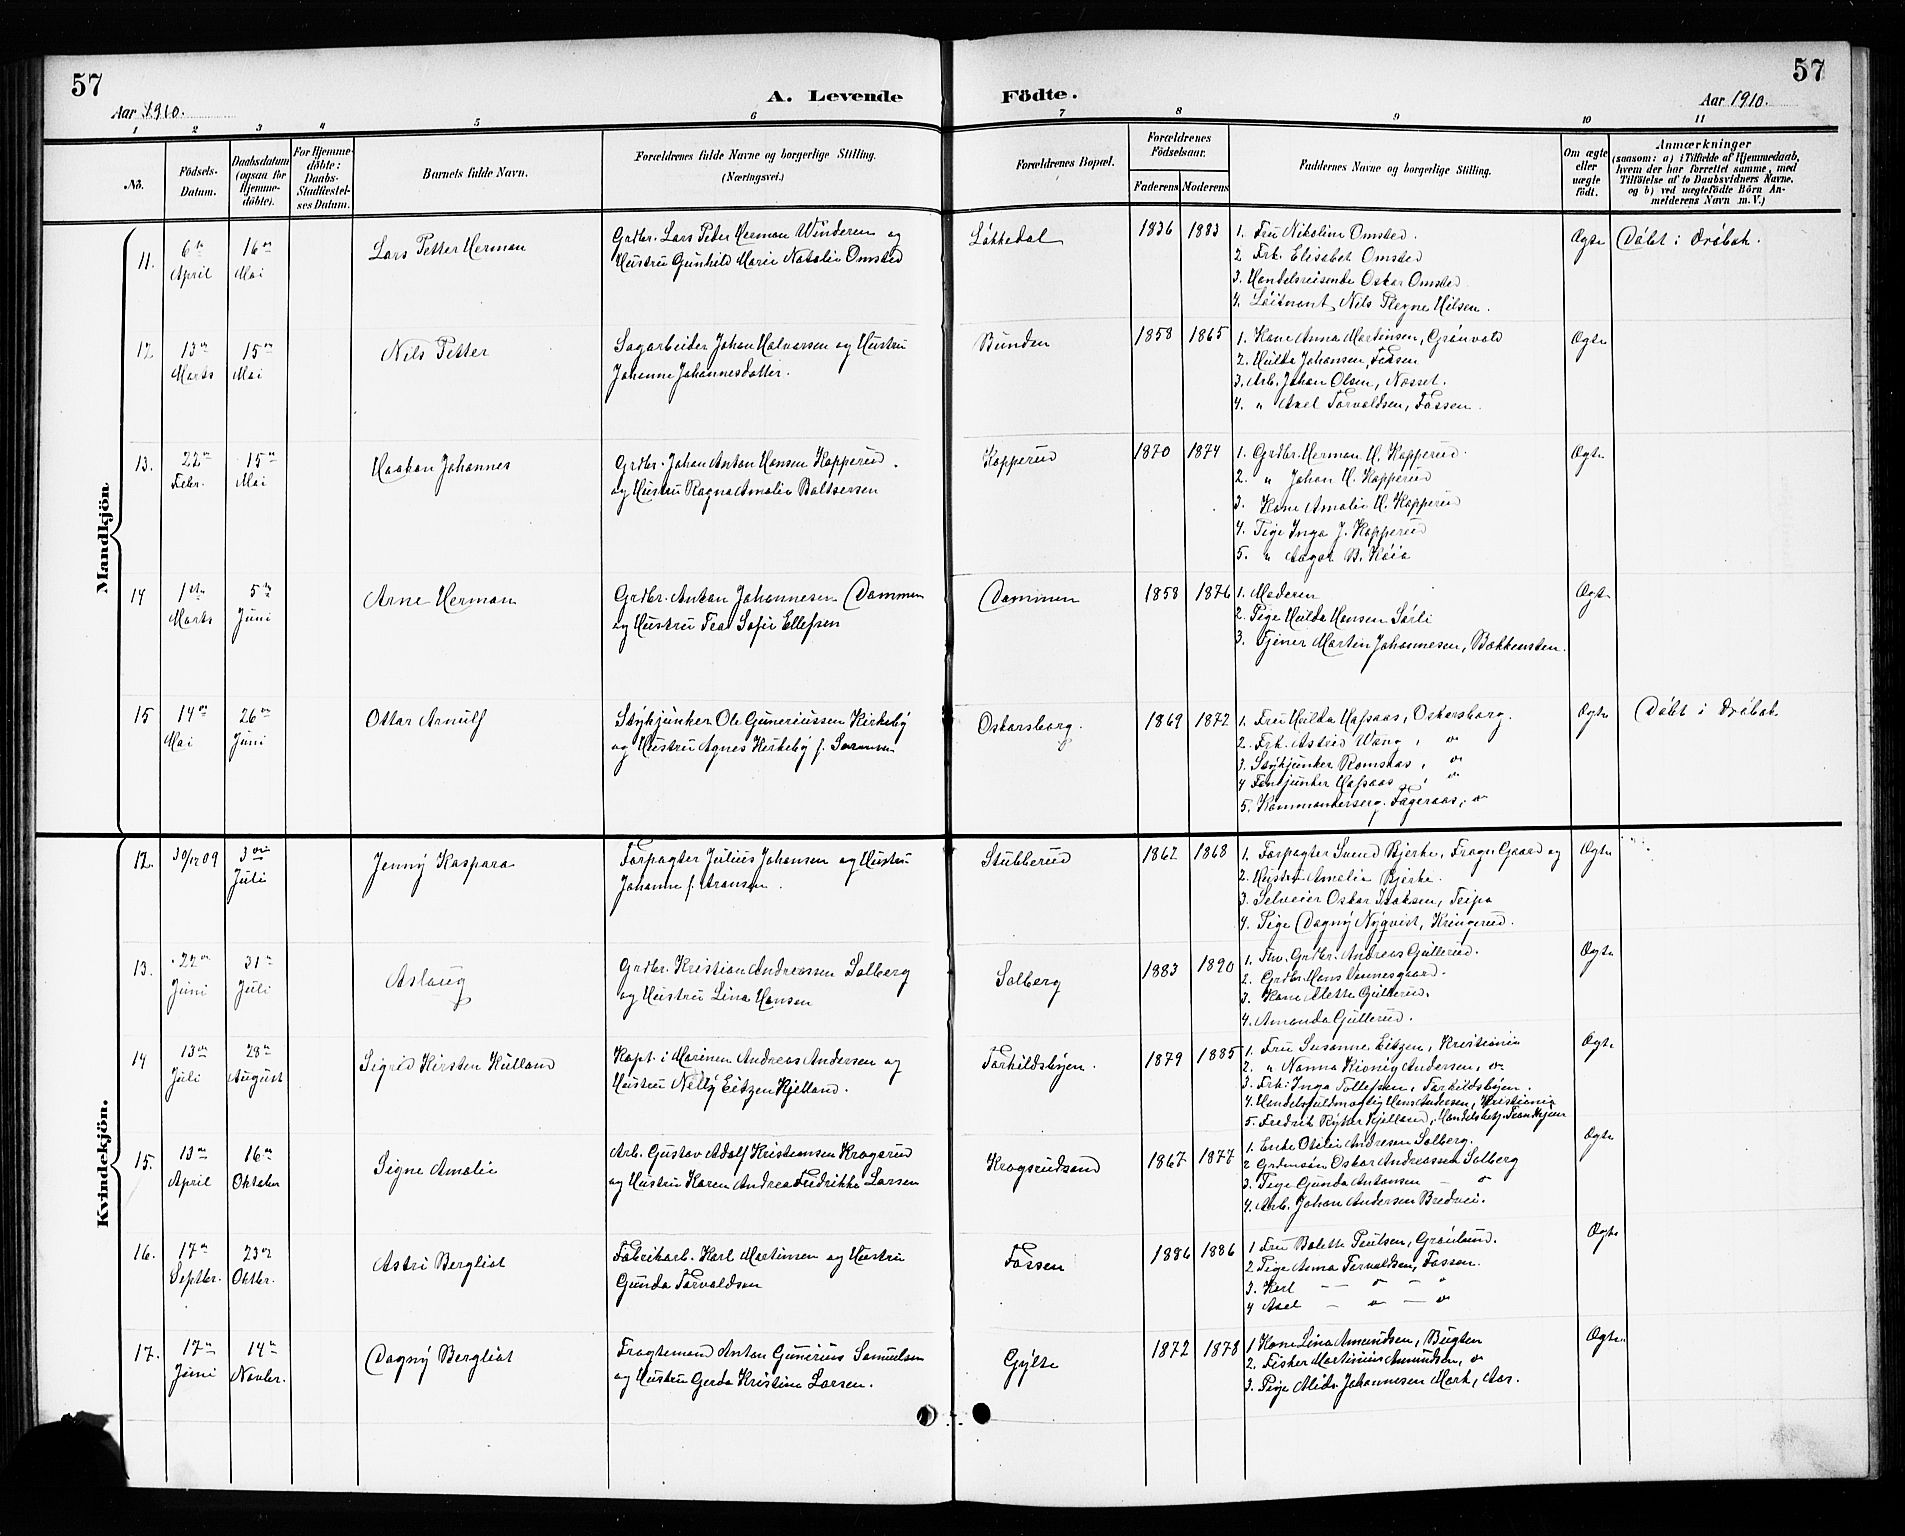 57
Aar 1910.
A. Levende Födte.
57
Aar 1910.
1 2 3 4 5 6 7 8 9 10 11
No.
Födsels-Datum.
Daabsdatum (ogsaa for Hjemme-döbte).
For Hjemme-döbte: Daabs-Stadfæstel-ses Datum.
Barnets fulde Navn.
Forældrenes fulde Navne og borgerlige Stilling.
(Næringsvei.)
Forældrenes Bopæl.
Forældrenes Födselsaar.
Faderens Moderens
Faddernes Navne og borgerlige Stilling.
Om ægte eller uægte födt.
Anmærkninger
(saasom: a) i Tilfælde af Hjemmedaab,
hvem der har forrettet samme, med
Tilföielse af to Daabsvidners Navne,
og b) ved uægtefödte Börn An-
melderens Navn m. V.)
Mandkjön
11. 6te April 16de Mai Lars Petter Herman
Grdbr. Lars Peter Herman Winderen og
Hustru Gunhild Marie Natalie Omsted
Løkkedal 1836 1883
1. Fru Nikoline Omsted.
2 Frk. Elisabet Omsted
3. Handelsreisende Oskar Omsted.
4. Løitnant Nils Nilsen.
Ægte Døbt i Drøbak.
12 13de Marts 15de Mai Nils Petter
Sagarbeider Johan Halvorsen og Hustru
Johanne Johannesdatter.
Bunden 1858 1865
1. Kone Anna Martinsen, Grønvold
2. Hulda Johansen, Fossen
3. Arb. Johan Olsen, Næsset.
4. " Axel Torvaldsen, Fossen.
Ægte
13. 22de Febr. 15de Mai Haakon Johannes
Grdbr. Johan Anton Hansen Kopperud.
og Hustru Ragna Amalie Baltsersen
Kopperud 1870 1874
1. Grdbr. Herman H. Kopperud.
2. " Johan H. Kopperud
3. Kone Amalie H. Kopperud
4. Pige Inga J. Kopperud
5. " Aagot B. Høia
Ægte
14 1ste Marts 5te Juni Arne Herman
Grdbr. Anton Johannesen Dammen
og Hustru Tea Sofie Ellefsen
Dammen 1858 1876
1. Moderen
2. Pige Hulda Hansen Sørli
3. Tjener Martin Johannesen, Bakkensten.
Ægte
15 14de Mai 26de Juni Ottar Arnulf
Stykjunker Ole Guneriussen Kirkeby
og Hustru Agnes Kirkeby f.
Oskarsborg. 1869 1872
1. Fru Hulda Hafsaas, Oskarsborg.
2. Frk. Astrid Wang, "
3. Stykjunker Romstas, "
4 Fanejunker Hafsaas, "
5. Kommanderserg. Fageraas, "
Ægte Døbt i Drøbak
Kvindekjön.
12. 30/12 09 3die Juli Jenny Kaspara
Forpagter Julius Johansen og Hustru
Johanne f. Aronsen.
Stubberud 1862 1868
1. Forpagter Svend Bjerke, Frogn Gaard og
2. Hustru Amelia Bjerke.
3. Selveier Oskar Isaksen, Teipa
4. Pige Dagny Nyqvist, Kringerud.
Ægte
13. 22de Juni 31te Juli Aslaug
Grdbr. Kristian Andreassen Solberg
og Hustru Lina Hansen
Solberg 1883 1890
1. Grdbr. Andreas Gullerud.
2. Grdbr. Hans Vennesgaard.
3. Kone Alette Gullerud.
4. Amanda Gullerud.
Ægte
14 13de Juli 28de August Sigrid Kirsten Hulland
Kapt. i Marinen Andreas Andersen og
Hustru Nelly Eitzen Kjelland.
Torkildsbyen. 1879 1885
1. Fru Susanne Eitzen, Kristiania
2. " Nanna Kionig Andersen, "
3. Frk. Inga Tollefsen, Torkildsbyen.
4. Handelsfuldmægtig Hans Andersen, Kristiania
5. Fredrik Kjelland,
Ægte
15. 13de April 16de Oktober Signe Amalie
Arb. Gustav Adolf Kristiansen Kragerud
og Hustru Karen Andrea Fredrikke Larsen
Kragerudsand 1867 1877
1. Enke Otelie Andresen Solberg.
2 Grdmsøn Oskar Andreassen Solberg
3. Pige Gunda Antonsen — "
4. Arb. Johan Andersen Bredvei.
Ægte
16. 17de Septbr. 23de Oktbr. Astri Bergliot
Fabrikarb. Karl Martinsen og Hustru
Gunda Torvaldsen
Fossen 1886 1886
1 Fru Bolette Poulsen, Grønlund.
2 Pige Anna Torvaldsen, Fossen.
3. Karl — " — "
4 Axel — " — "
Ægte
17. 17de Juni 14de Novbr. Dagny Bergliot
Fragtemand Anton Gunerius Samuelsen
og Hustru Gerda Kristine Larsen.
Gylte 1872 1878
1 Kone Lina Amundsen, Bugten
2. Fisker Martinius Amundsen, "
3. Pige Alida Johannesen Mork, Aas.
Ægte